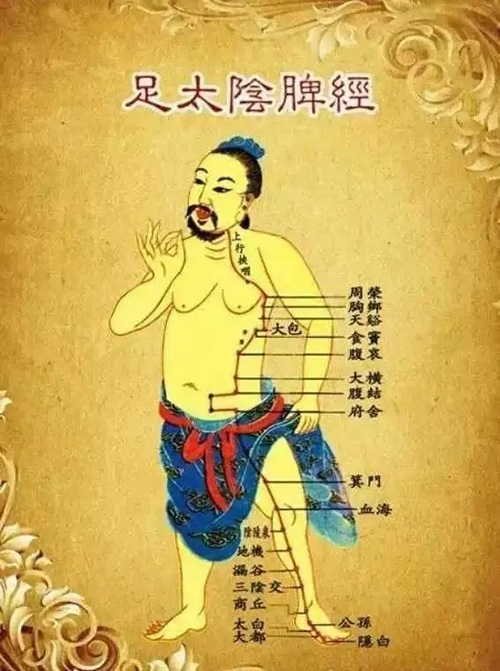 足太陰脾經
上行挾咽
周榮
胸鄉
天谿
大包
食竇
腹哀
大橫
腹結
府舍
箕門
血海
陰陵泉
地機
漏谷
三陰交
商丘
公孫
太白
大都
隱白